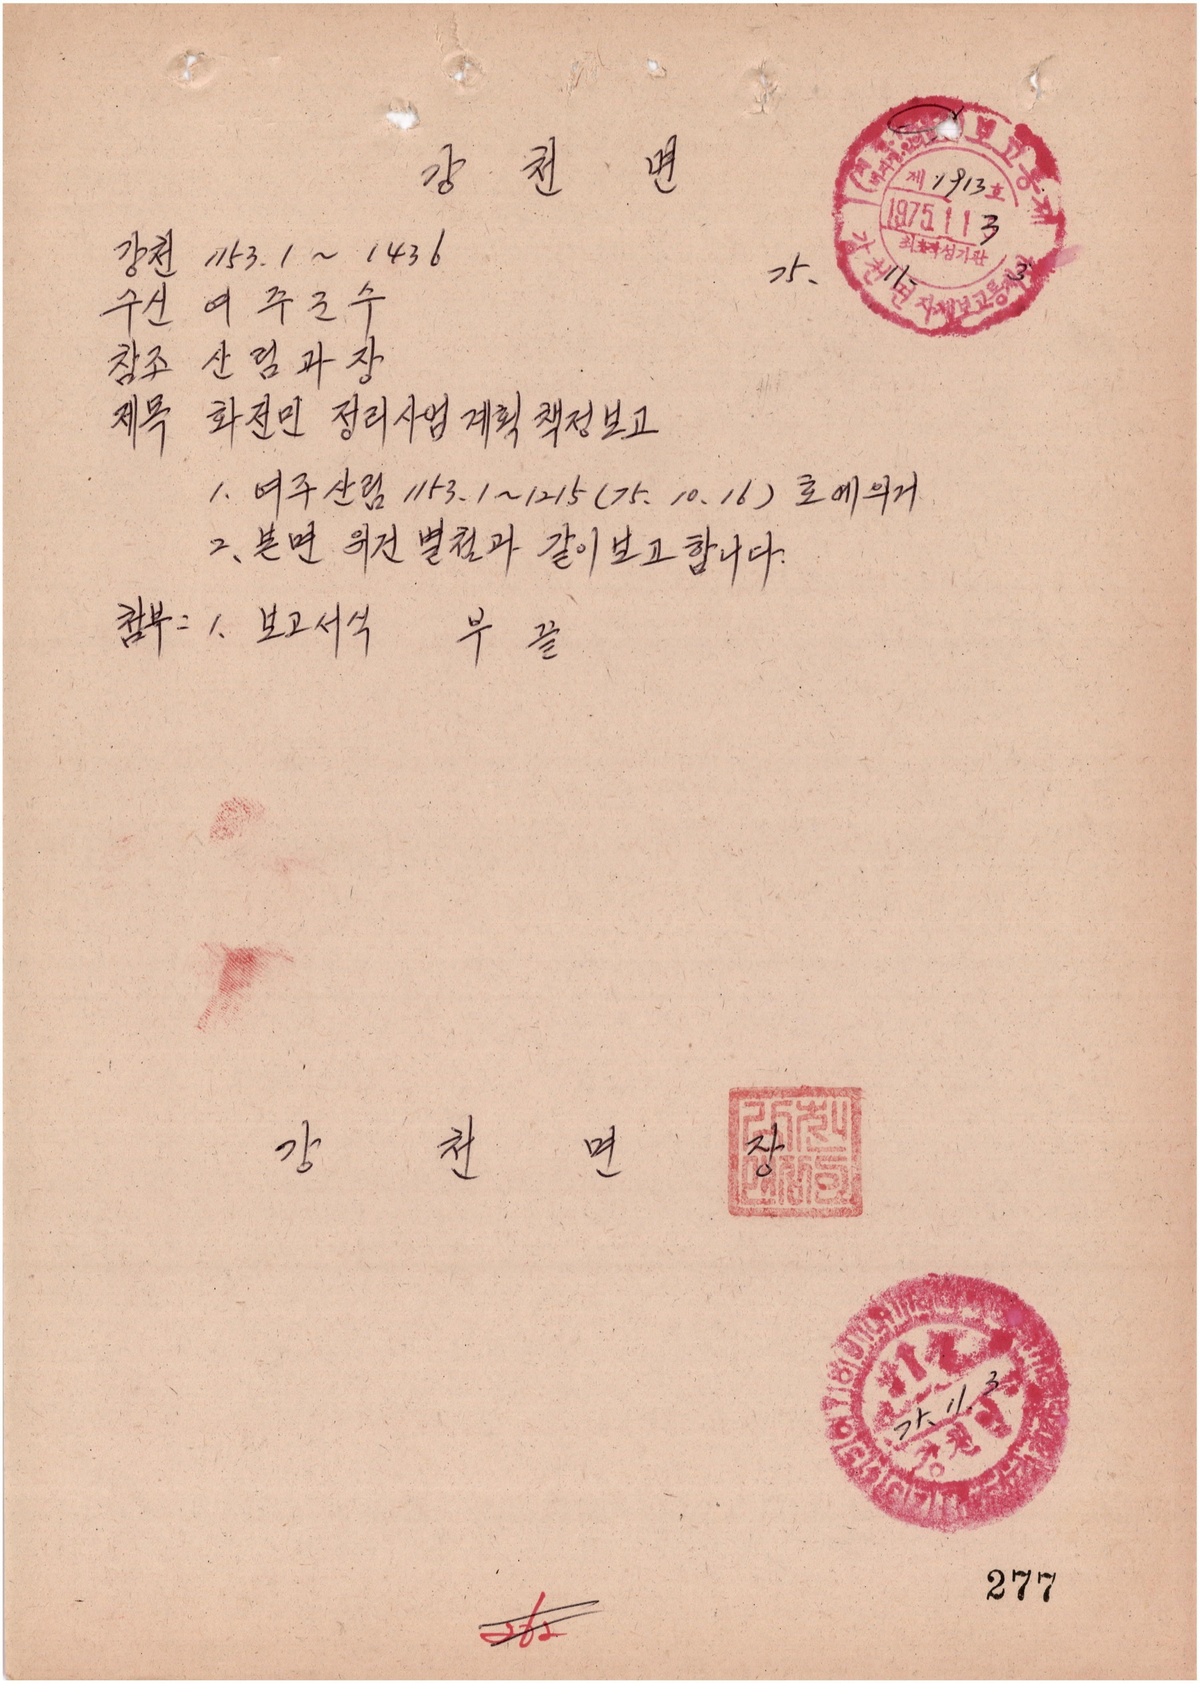 강 천 면
제 1913 호
1975 11 3
최초작성기관
강천면 자체보고통제관
강천 1153.1 ~ 1436
75. 11. 3
수신 여주군수
참조 산림과장
제목 화전민 정리사업 계획 책정보고
1. 여주산림 1153.1~1215 (75. 10. 16) 호에 의거
2. 본면 위건 별첨과 같이 보고합니다.
첨부= 1. 보고서식 부 끝
강 천 면 장
75. 11. 3
강천면
277
262